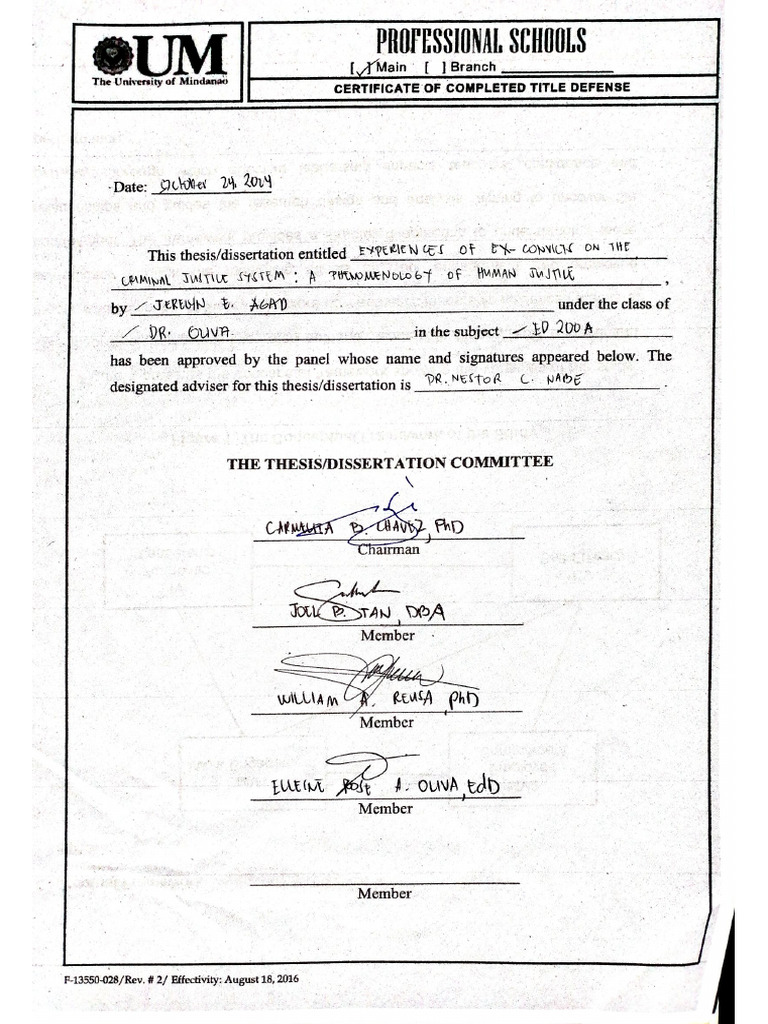 UM
The University of Mindanao
PROFESSIONAL SCHOOLS
[✓] Main [ ] Branch
CERTIFICATE OF COMPLETED TITLE DEFENSE
Date: October 24, 2024
This thesis/dissertation entitled EXPERIENCES OF EX-CONVICTS ON THE
CRIMINAL JUSTICE SYSTEM: A PHENOMENOLOGY OF HUMAN JUSTICE,
by JERELYN E. AGAD under the class of
DR. OLIVA in the subject ED 200A
has been approved by the panel whose name and signatures appeared below. The
designated adviser for this thesis/dissertation is DR. NESTOR C. NABE.
THE THESIS/DISSERTATION COMMITTEE
CARMELITA B. CHAVEZ, PhD
Chairman
JOEL B. TAN, DBA
Member
WILLIAM A. REUSA, PhD
Member
ELLEINE ROSE A. OLIVA, EdD
Member
Member
F-13550-028/Rev. # 2/ Effectivity: August 18, 2016